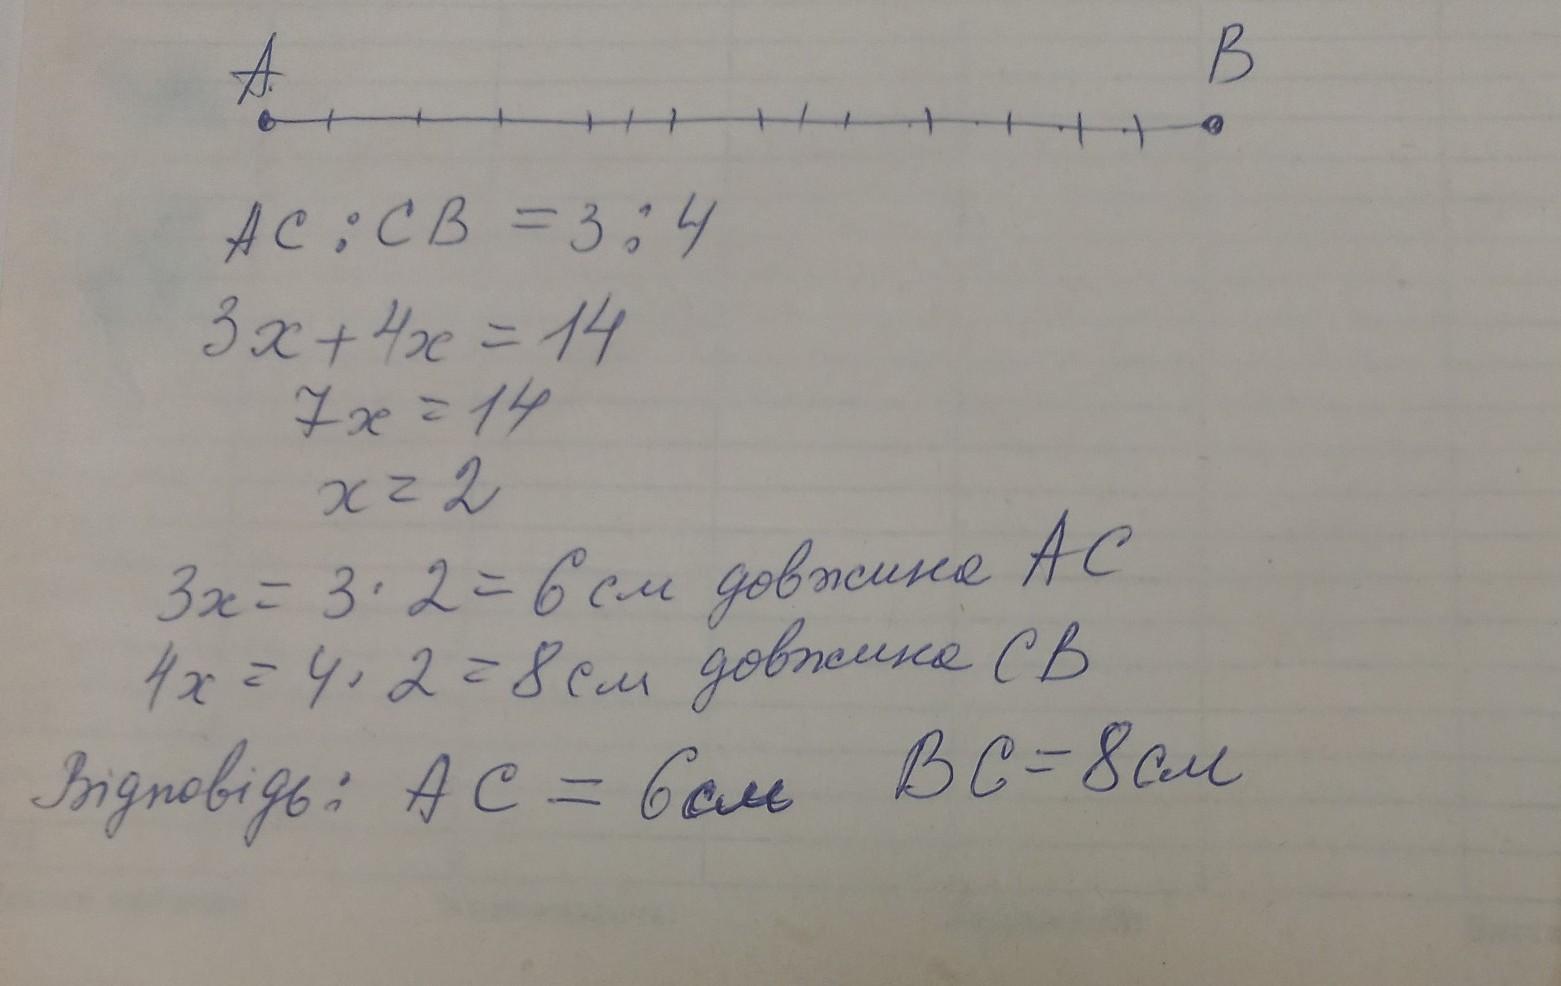 A B
AC : CB = 3 : 4
3x + 4x = 14
7x = 14
x = 2
3x = 3 · 2 = 6 см довжина AC
4x = 4 · 2 = 8 см довжина CB
Відповідь: AC = 6 см BC = 8 см